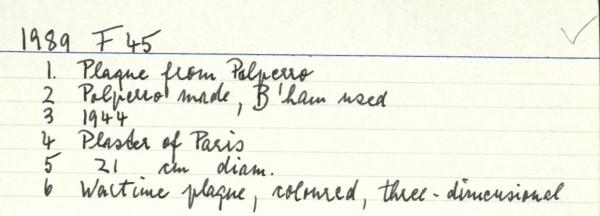 1989 F 45
1. Plaque from Polperro
2 Polperro made, B'ham used
3 1944
4 Plaster of Paris
5 21 cm diam.
6 Wartime plaque, coloured, three-dimensional